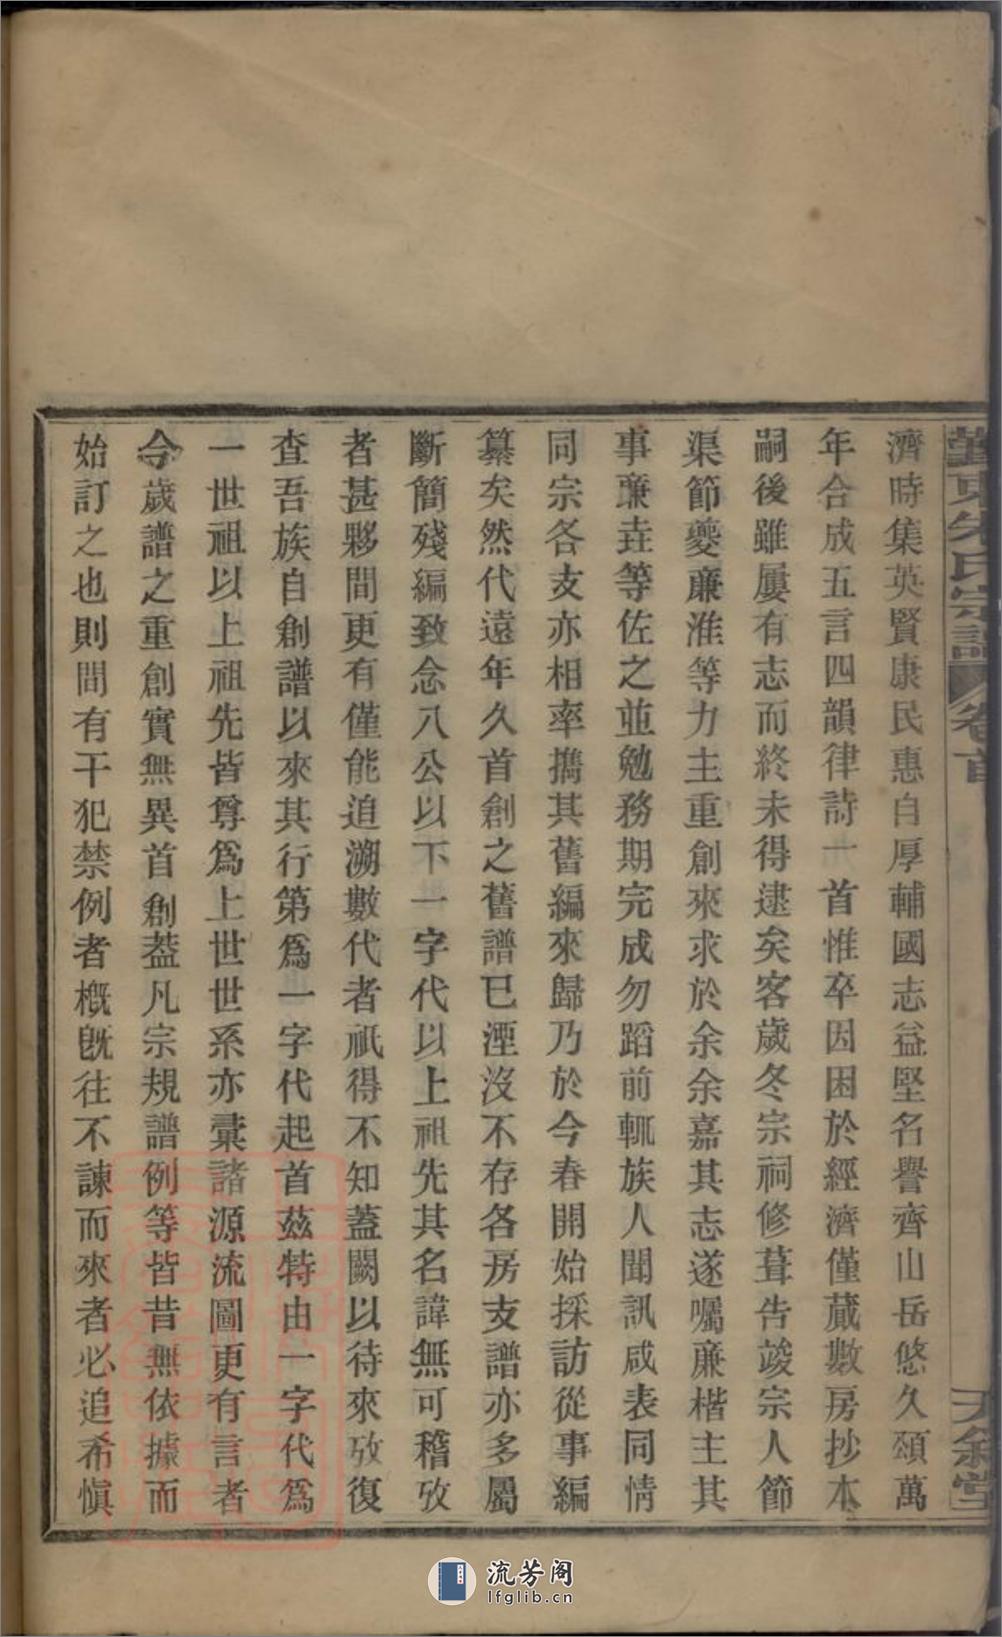 濟時集英賢康民惠自厚輔國志益堅名譽齊山岳悠久頌萬
年合成五言四韻律詩一首惟卒因困於經濟僅蕆數房抄本
嗣後雖屢有志而終未得逮矣客歲冬宗祠修葺告竣宗人節
渠節夔廉淮等力主重創來求於余余嘉其志遂囑廉楷主其
事廉垚等佐之並勉務期完成勿蹈前輒族人聞訊咸表同情
同宗各支亦相率攜其舊編來歸乃於今春開始採訪從事編
纂矣然代遠年久首創之舊譜已湮沒不存各房支譜亦多屬
斷簡殘編致念八公以下一字代以上祖先其名諱無可稽攷
者甚夥間更有僅能追溯數代者祇得不知蓋闕以待來攷復
查吾族自創譜以來其行第爲一字代起首茲特由一字代爲
一世祖以上祖先皆尊爲上世世系亦彙諸源流圖更有言者
今歲譜之重創實無異首創葢凡宗規譜例等皆昔無依據而
始訂之也則間有干犯禁例者槪旣往不諫而來者必追希愼
朱氏宗譜
卷首
九敘堂
流芳阁
lfglib.cn